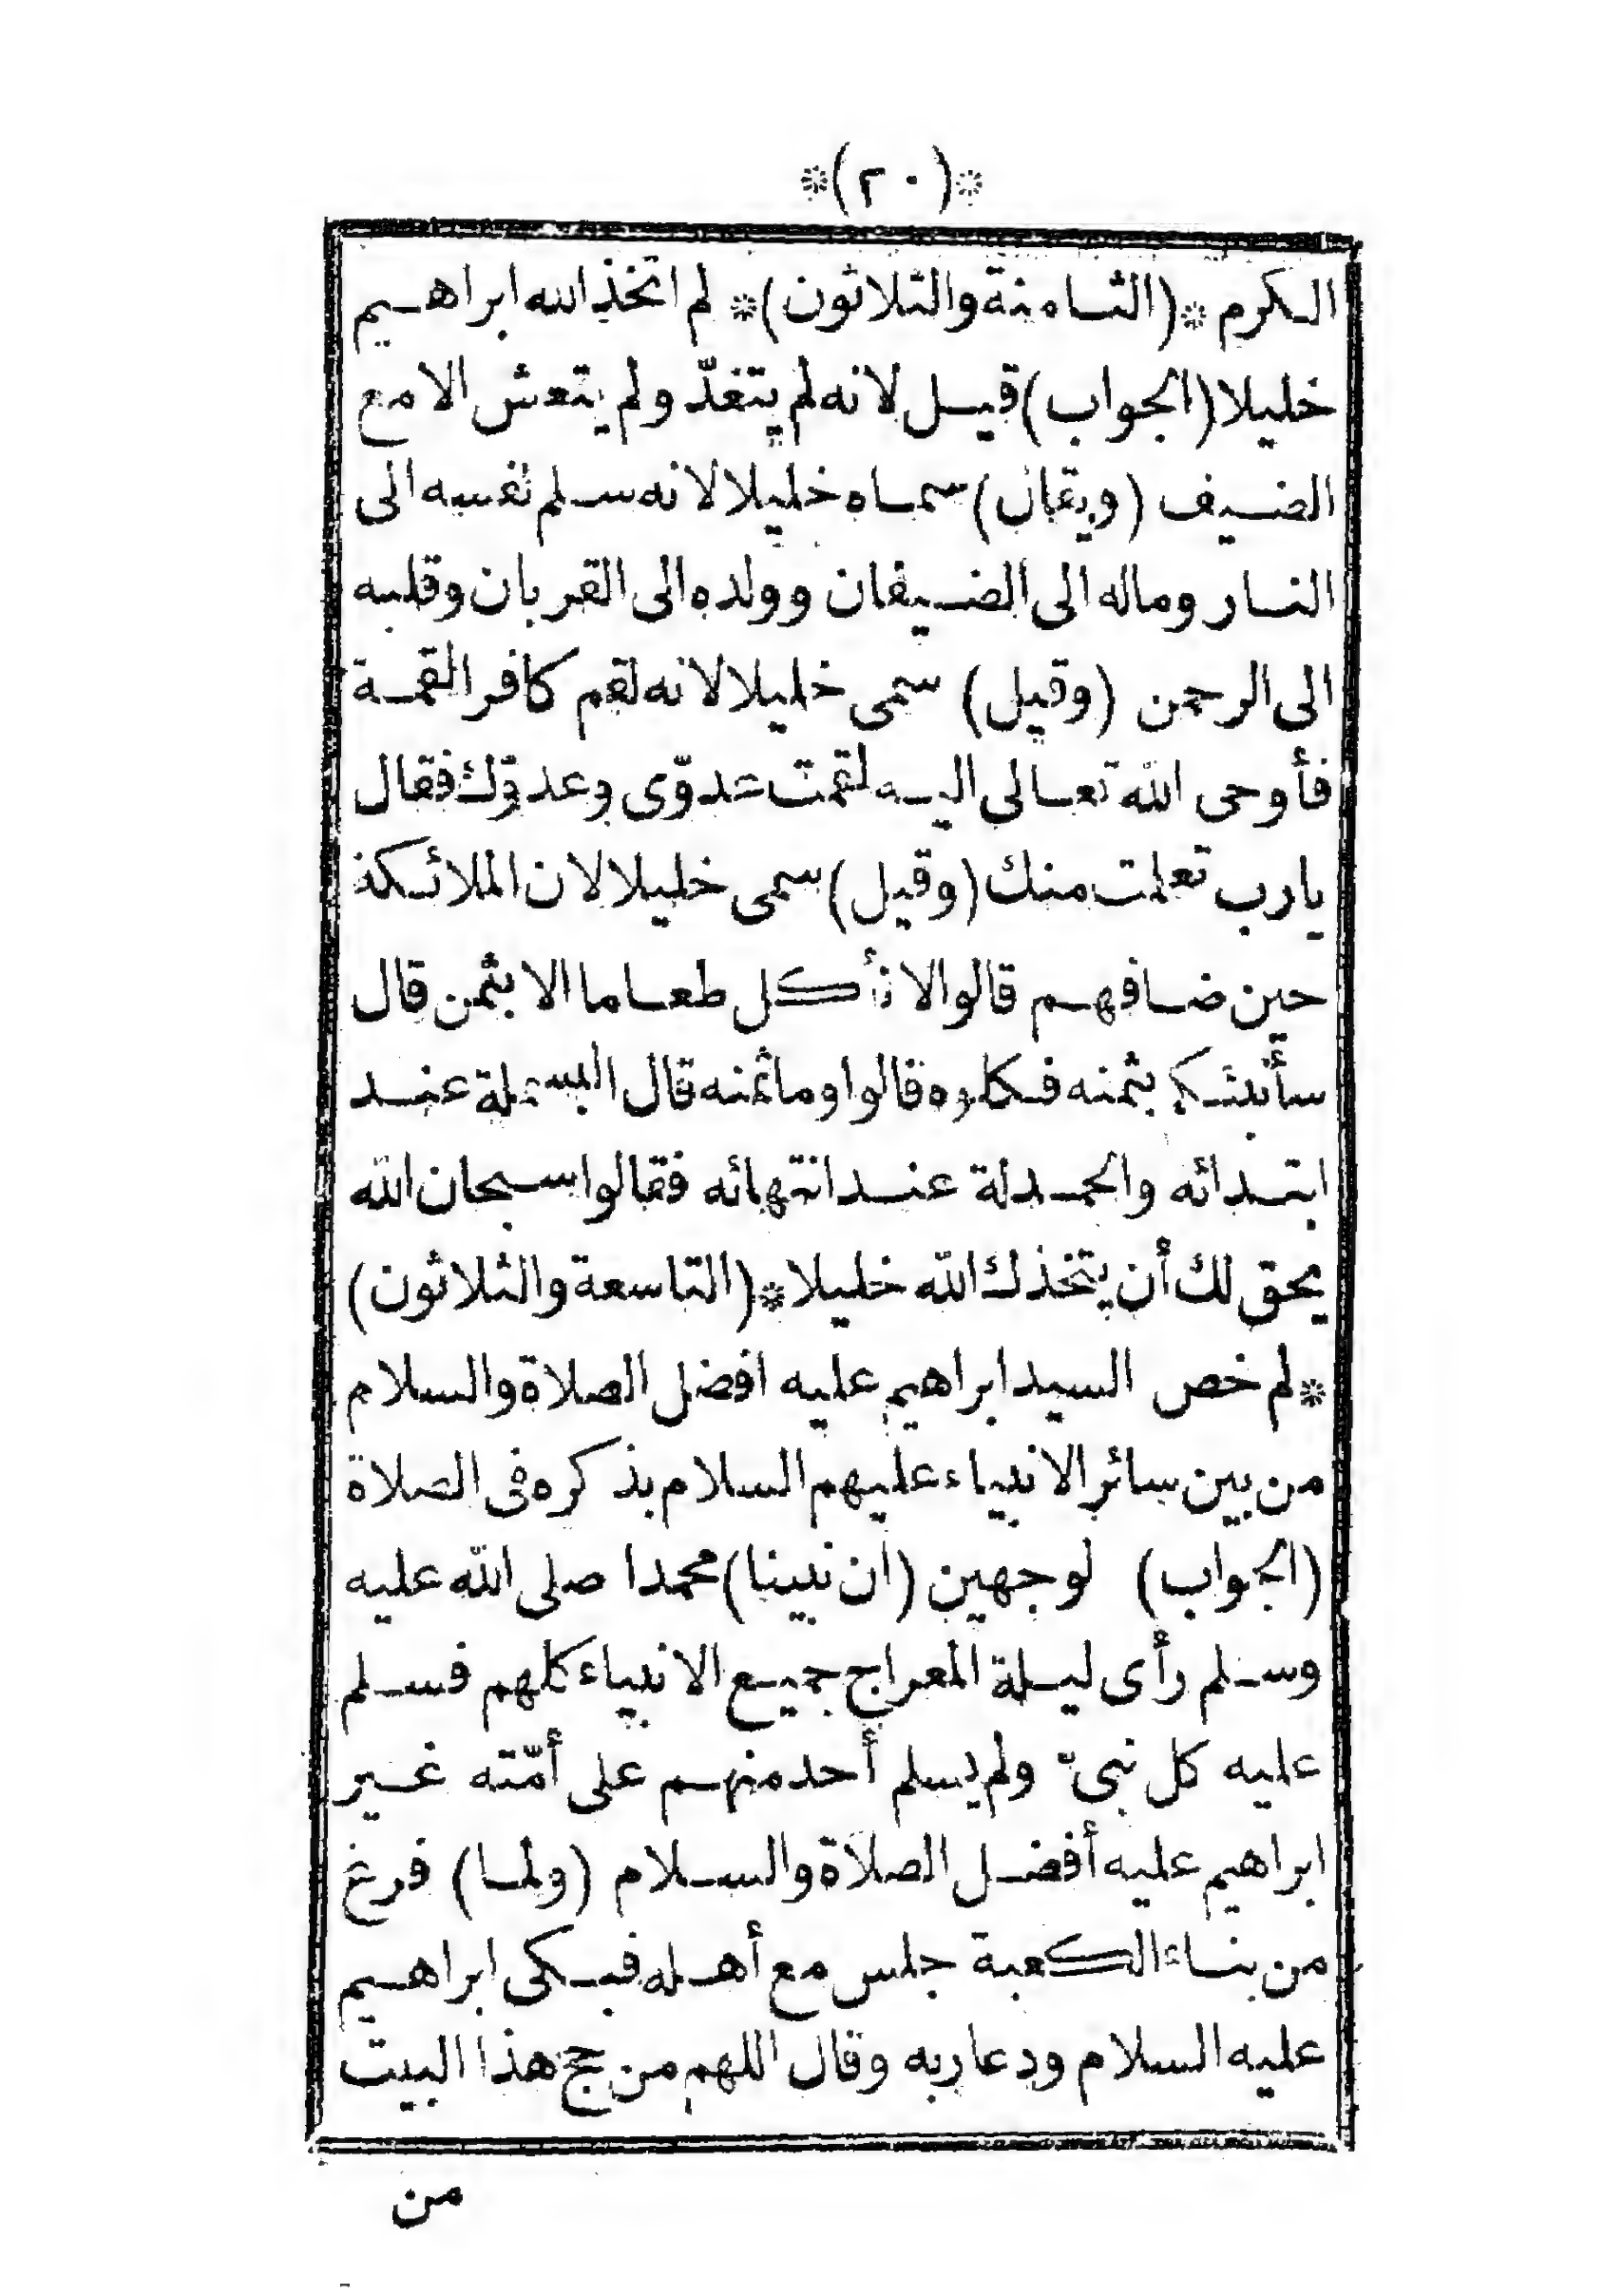 *(٢٠)*
الكرم *(الثامنة والثلاثون)* لم اتخذ الله ابراهيم
خليلا (الجواب) قيل لانه لم يتغدّ ولم يتعش الا مع
الضيف (ويقال) سماه خليلا لانه سلم نفسه الى
النار وماله الى الضيفان وولده الى القربان وقلبه
الى الرحمن (وقيل) سمى خليلا لانه لقم كافرا لقمة
فأوحى الله تعالى اليه لقمت عدوّى وعدوّك فقال
يارب تعلمت منك (وقيل) سمى خليلا لان الملائكة
حين ضافهم قالوا لا نأكل طعاما الا بثمن قال
سأنبئكم بثمنه فكلوه قالوا وما ثمنه قال البسملة عند
ابتدائه والحمدلة عند انتهائه فقالوا سبحان الله
يحق لك أن يتخذك الله خليلا *(التاسعة والثلاثون)
* لم خص السيد ابراهيم عليه افضل الصلاة والسلام
من بين سائر الانبياء عليهم السلام بذكره فى الصلاة
(الجواب) لوجهين (ان نبينا) محمدا صلى الله عليه
وسلم رأى ليلة المعراج جميع الانبياء كلهم فسلم
عليه كل نبىّ ولم يسلم أحد منهم على أمّته غير
ابراهيم عليه أفضل الصلاة والسلام (ولما) فرغ
من بناء الكعبة جلس مع أهله فبكى ابراهيم
عليه السلام ودعا ربه وقال اللهم من حج هذا البيت
من